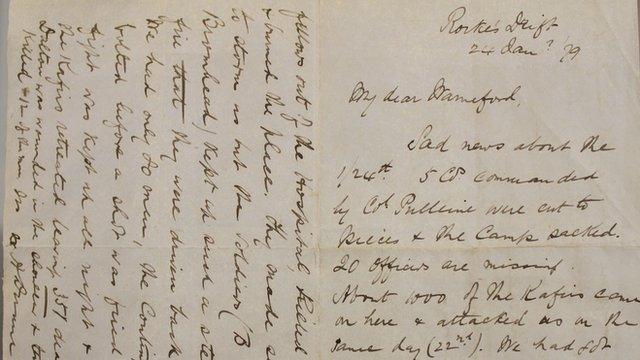 Rorke's Drift
24 Jany /79
My dear Warneford,
Sad news about the
1/24th 5 Cos commanded
by Col Pulleine were cut to
pieces & the Camp sacked.
20 Officers are missing.
About 1000 of the Kafirs came
on here & attacked us on the
same day (22nd). We had got
fellows out of the Hospital, killed
& burned the place. They made
to storm us but the soldiers (B
Bromhead) kept up such a
fire that they were driven back
We had only 80 men, the
bolted before a shot was fired
fight was kept up all night &
the Kafirs retreated leaving 351
Dalton was wounded in the
killed & 12 of the men